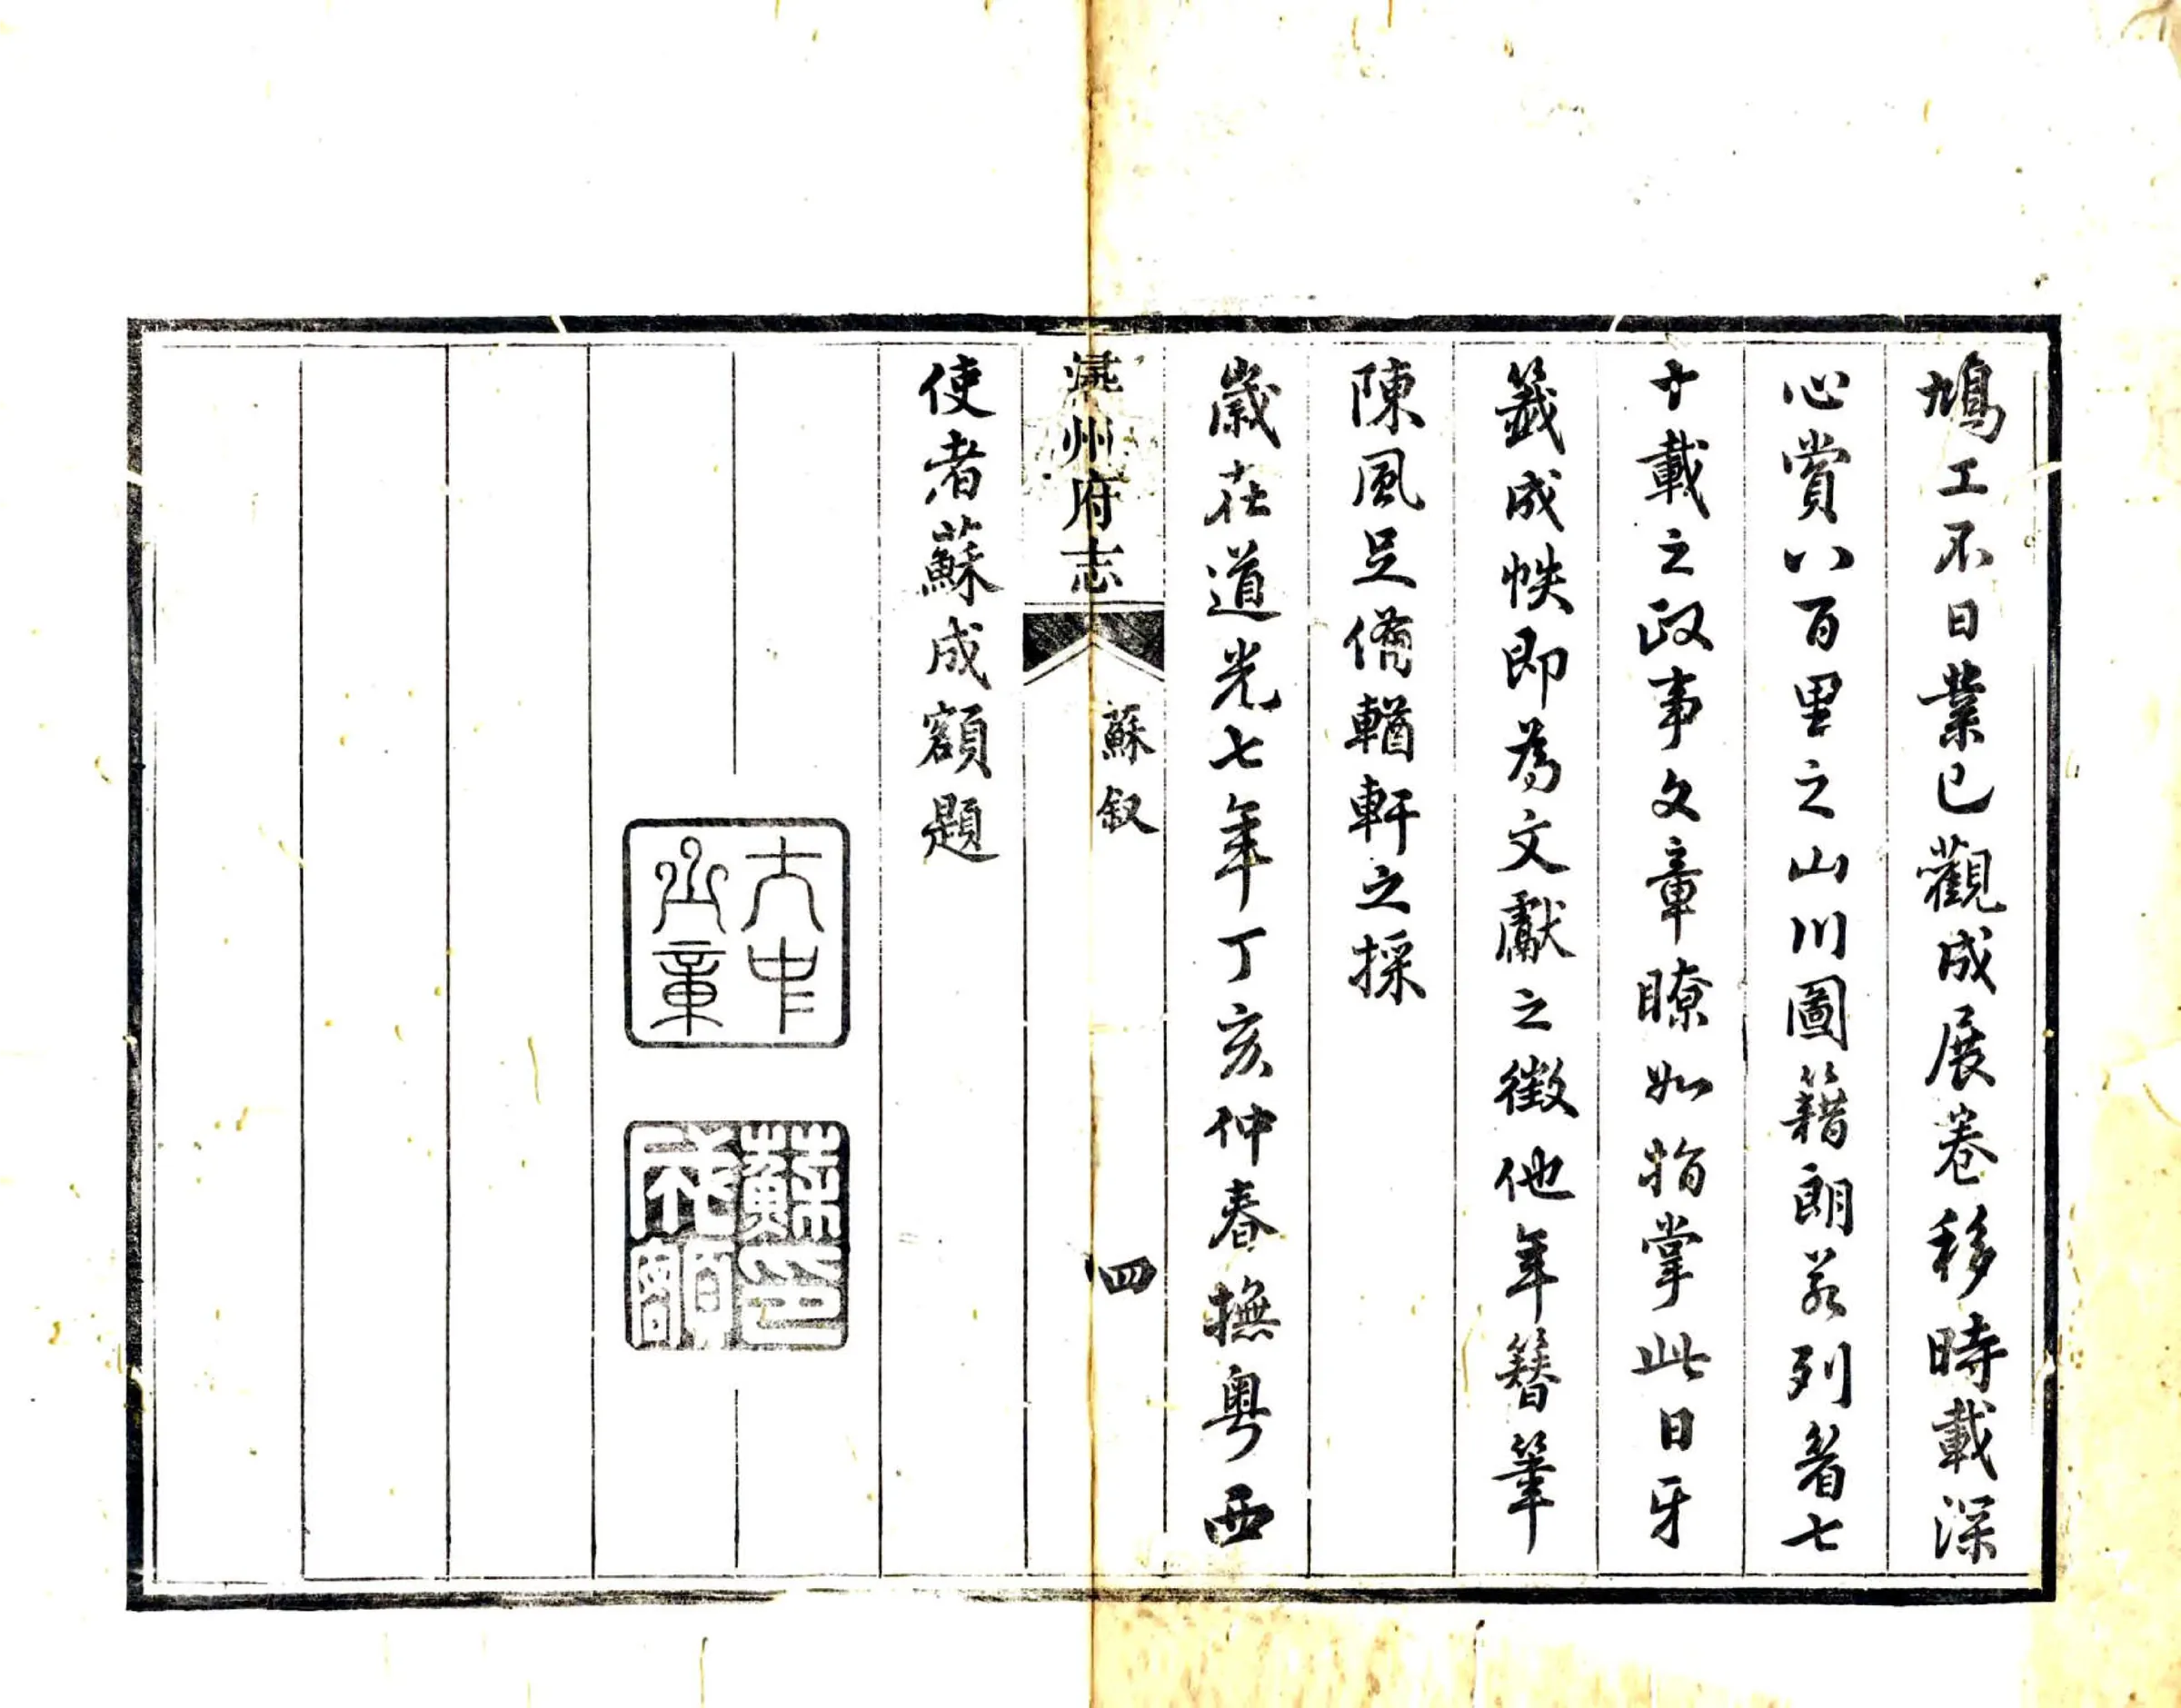 鳩工不日業已觀成展卷移時載深
心賞八百里之山川圖籍朗若列着七
十載之政事文章瞭如指掌此日牙
籤成帙即為文獻之徵他年簪筆
陳風足備輶軒之採
歲在道光七年丁亥仲春撫粵西
潯州府志
蘇敘
四
使者蘇成額題
大中
丞章
蘇印
成額